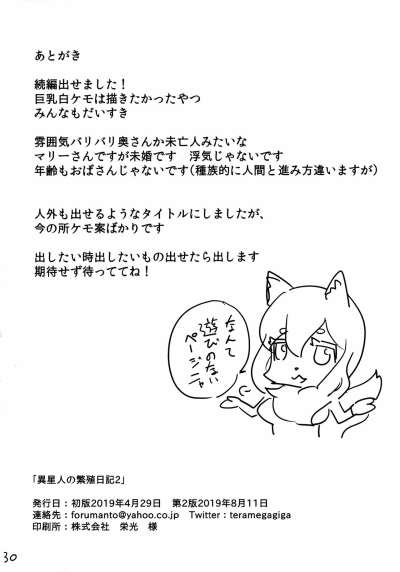 あとがき
続編出せました!
巨乳白ケモは描きたかったやつ
みんなもだいすき
雰囲気バリバリ奥さんか未亡人みたいな
マリーさんですが未婚です　浮気じゃないです
年齢もおばさんじゃないです(種族的に人間と進み方違いますが)
人外も出せるようなタイトルにしましたが、
今の所ケモ案ばかりです
出したい時出したいもの出せたら出します
期待せず待っててね!
なんて
遊びのない
ページニャ
「異星人の繁殖日記2」
発行日：初版2019年4月29日　第2版2019年8月11日
連絡先：forumanto@yahoo.co.jp　Twitter：teramegagiga
印刷所：株式会社　栄光　様
30